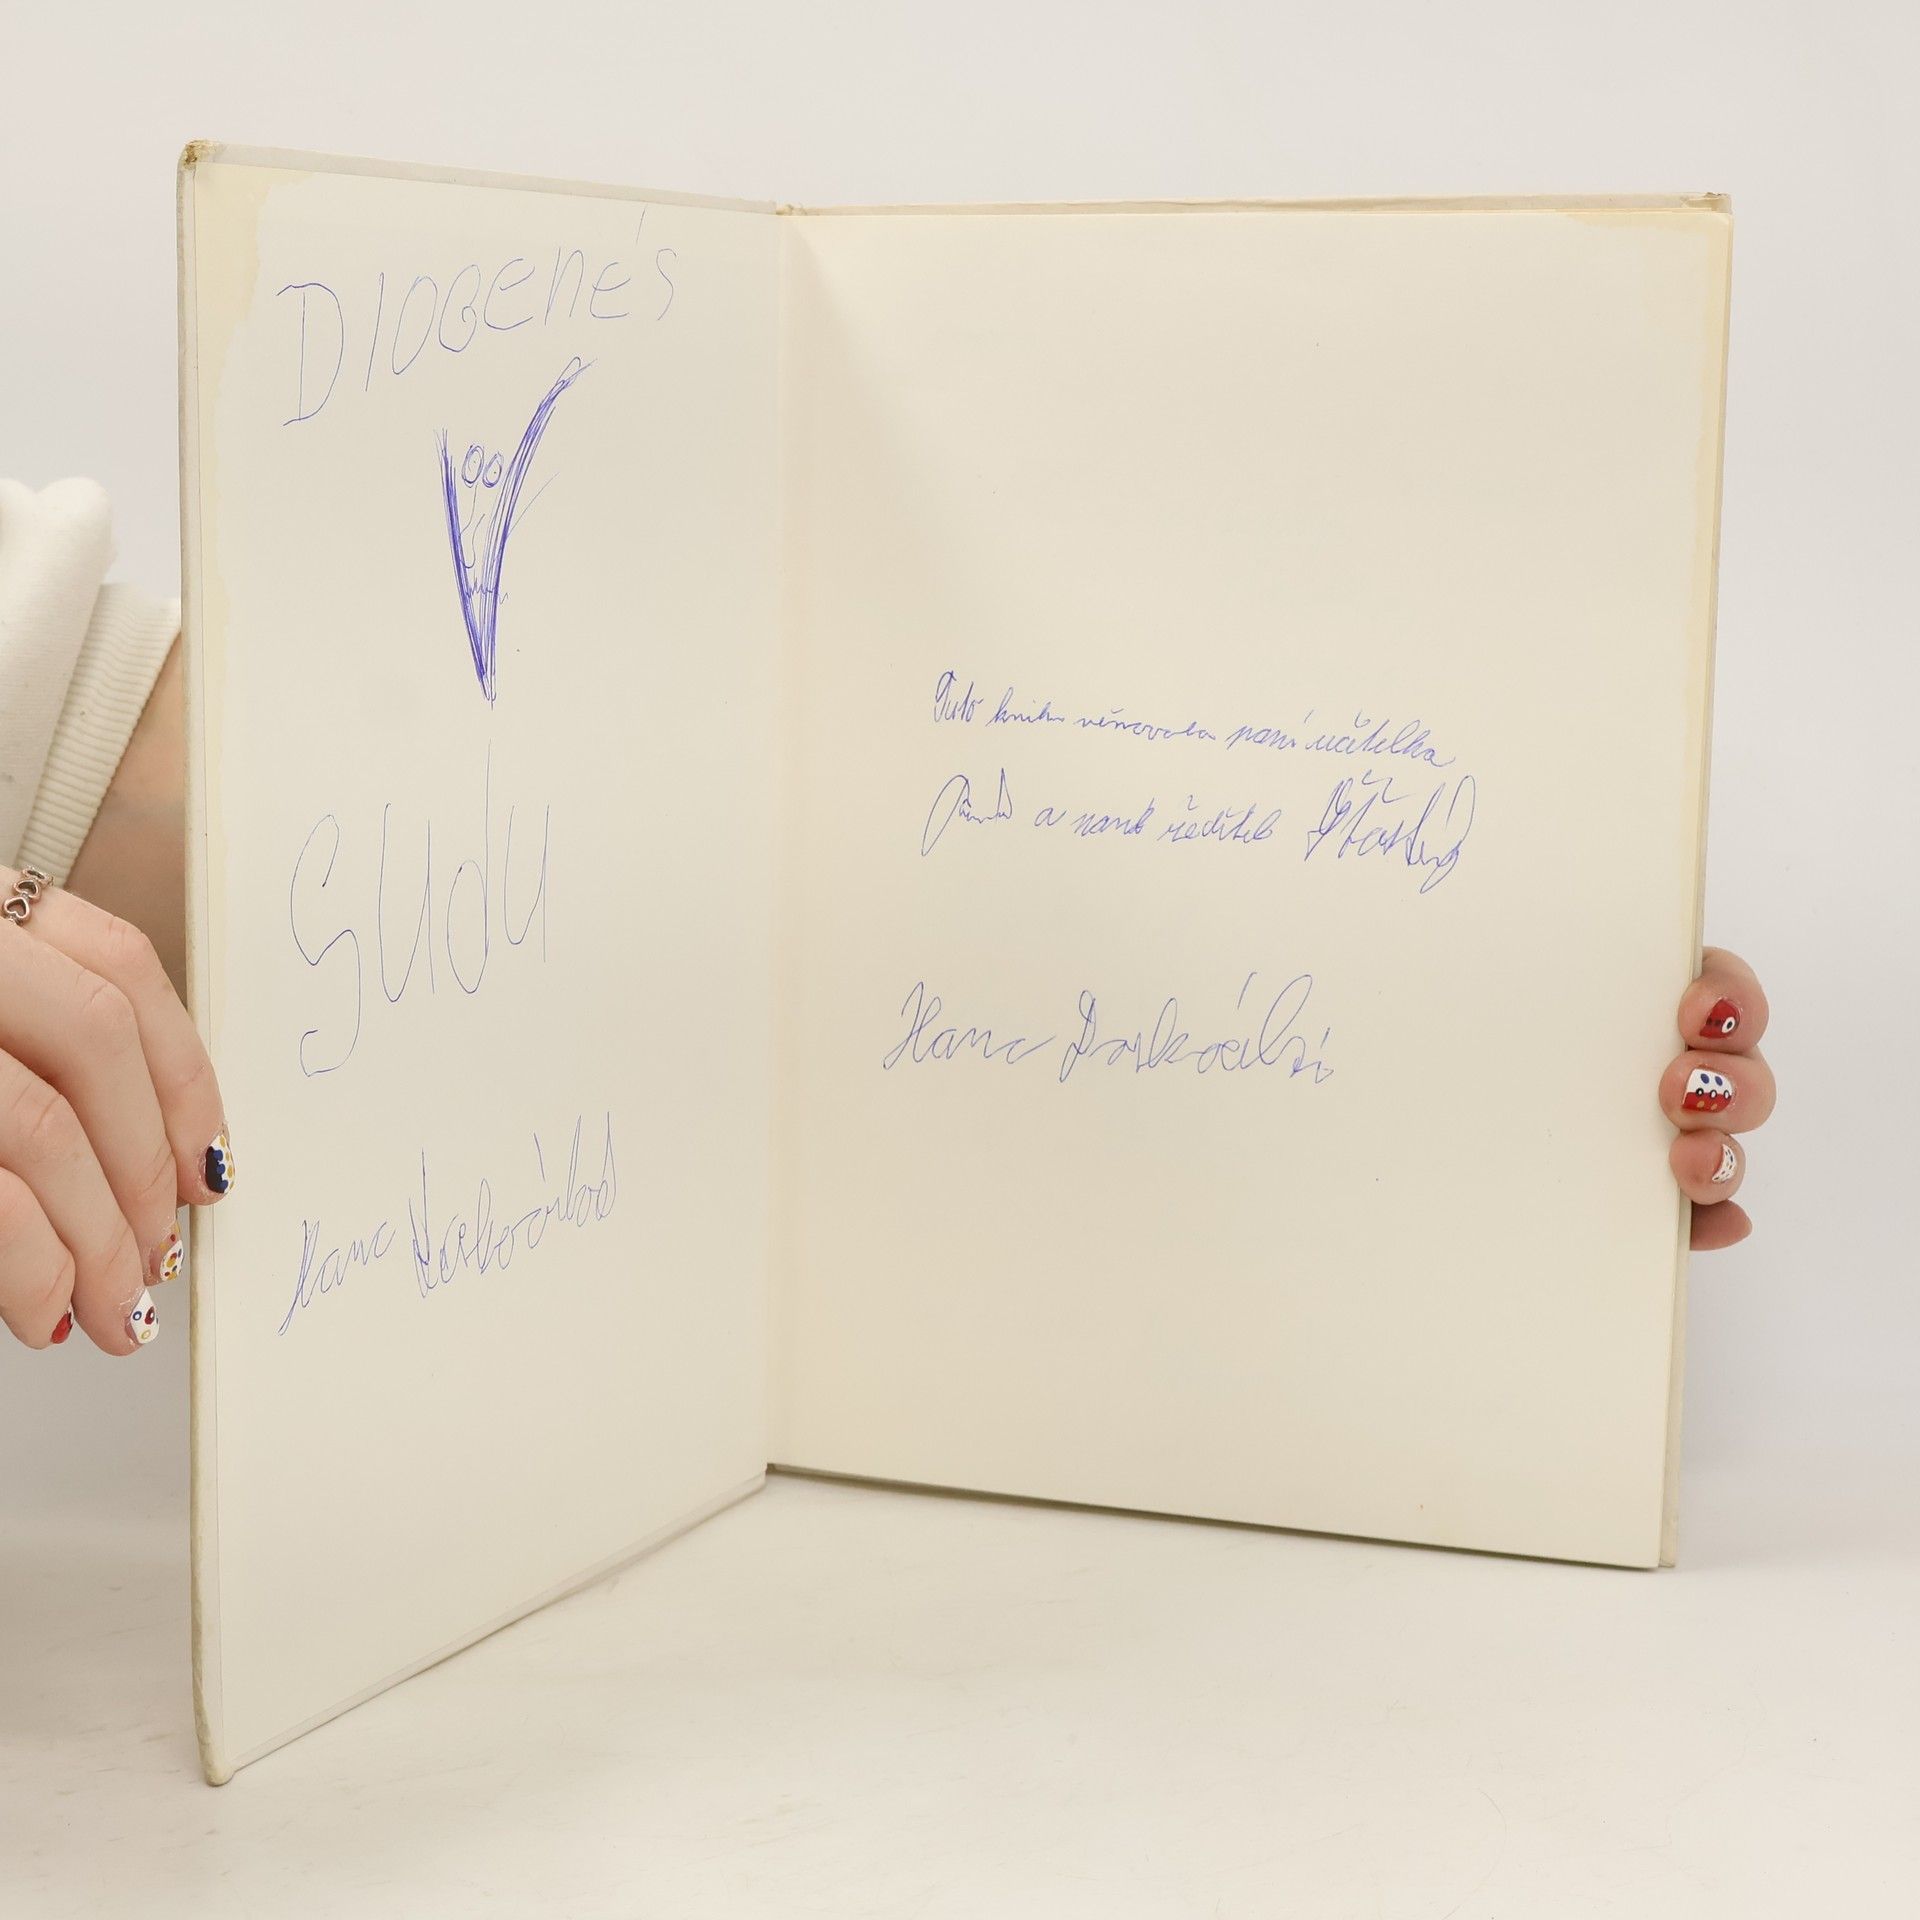 DIOGENÉS
Sudu
Hanc
Tuto knihu věnovala paní učitelka
a nank ředitel Šťastný
Hanc